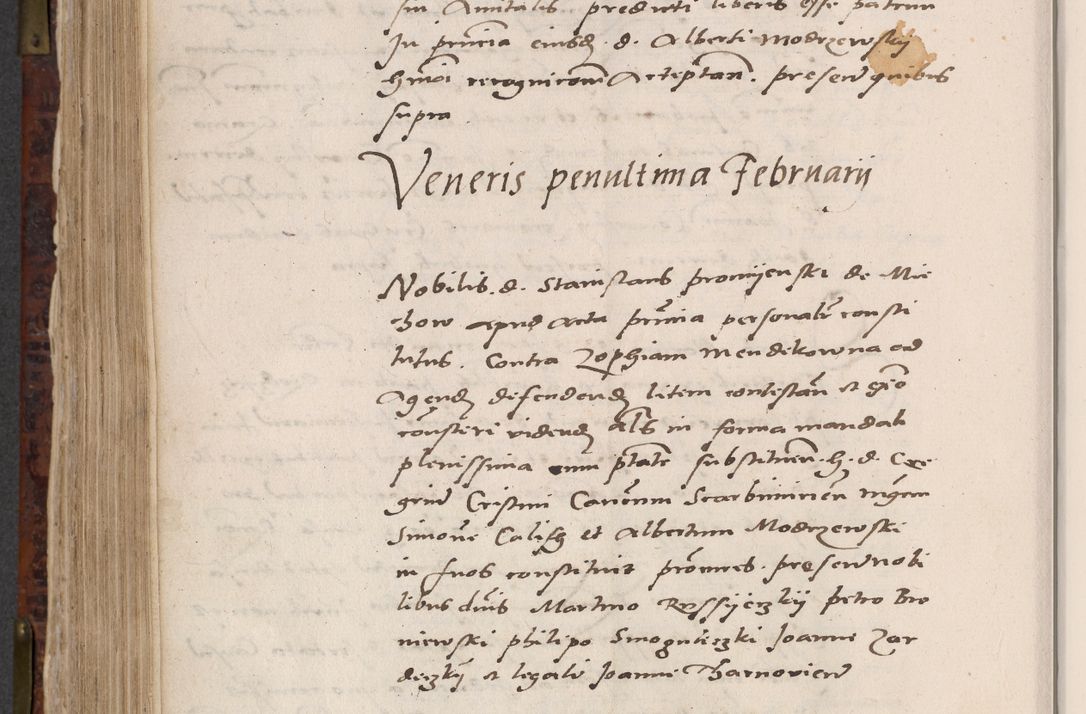 sui Amitalis predicti liberis esse patrum
In prncia eiusd d. Alberti Modrzewskij
hmoi recognicom Acceptan. presen quibus
supra
Veneris penultima Februarij
Nobilis. d. Stanislaus promijenski de Mie
chow apud Acta prncia personalr consti
tutus. Contra Zophiam Mendekowna ad
Agend defendend litem contestan et
consteri vidend als in forma mandati
plenissima cum ptate substituen. h. d.
Cristini Canonum Scarbimirien mgrm
Simone Calisz et Albertum Modrzewski
in suos constituit procures. presen nobi
libus dnis Martino petro Bro
niewski philipo Smoguleczki Joanne Zar
deczkj et legali Joanne Tharnovien